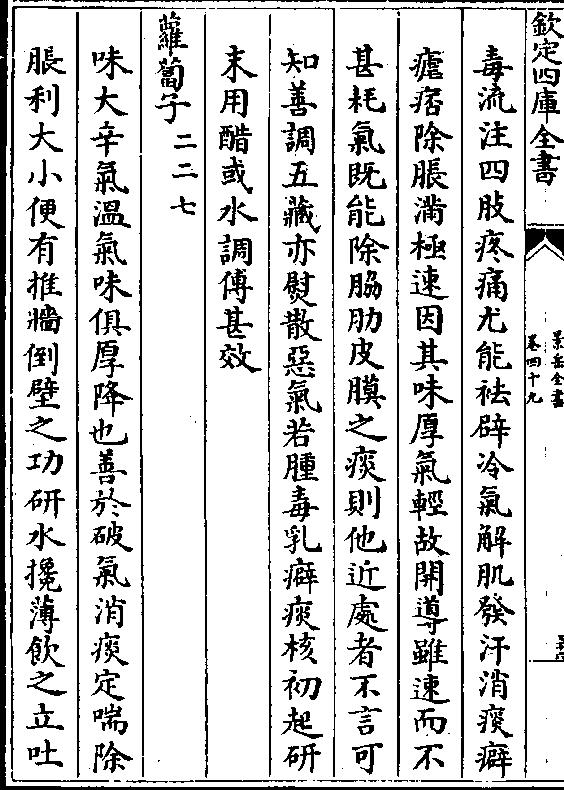 欽定四庫全書
景岳全書
卷四十九
毒流注四肢疼痛尤能祛辟冷氣解肌發汗消痰癖
瘧痞除脹滿極速因其味厚氣輕故開導雖速而不
甚耗氣既能除脇肋皮膜之痰則他近處者不言可
知善調五藏亦熨散惡氣若腫毒乳癖痰核初起研
末用醋或水調傅甚效
蘿蔔子二二七
味大辛氣溫氣味俱厚降也善於破氣消痰定喘除
脹利大小便有推牆倒壁之功研水攙薄飲之立吐